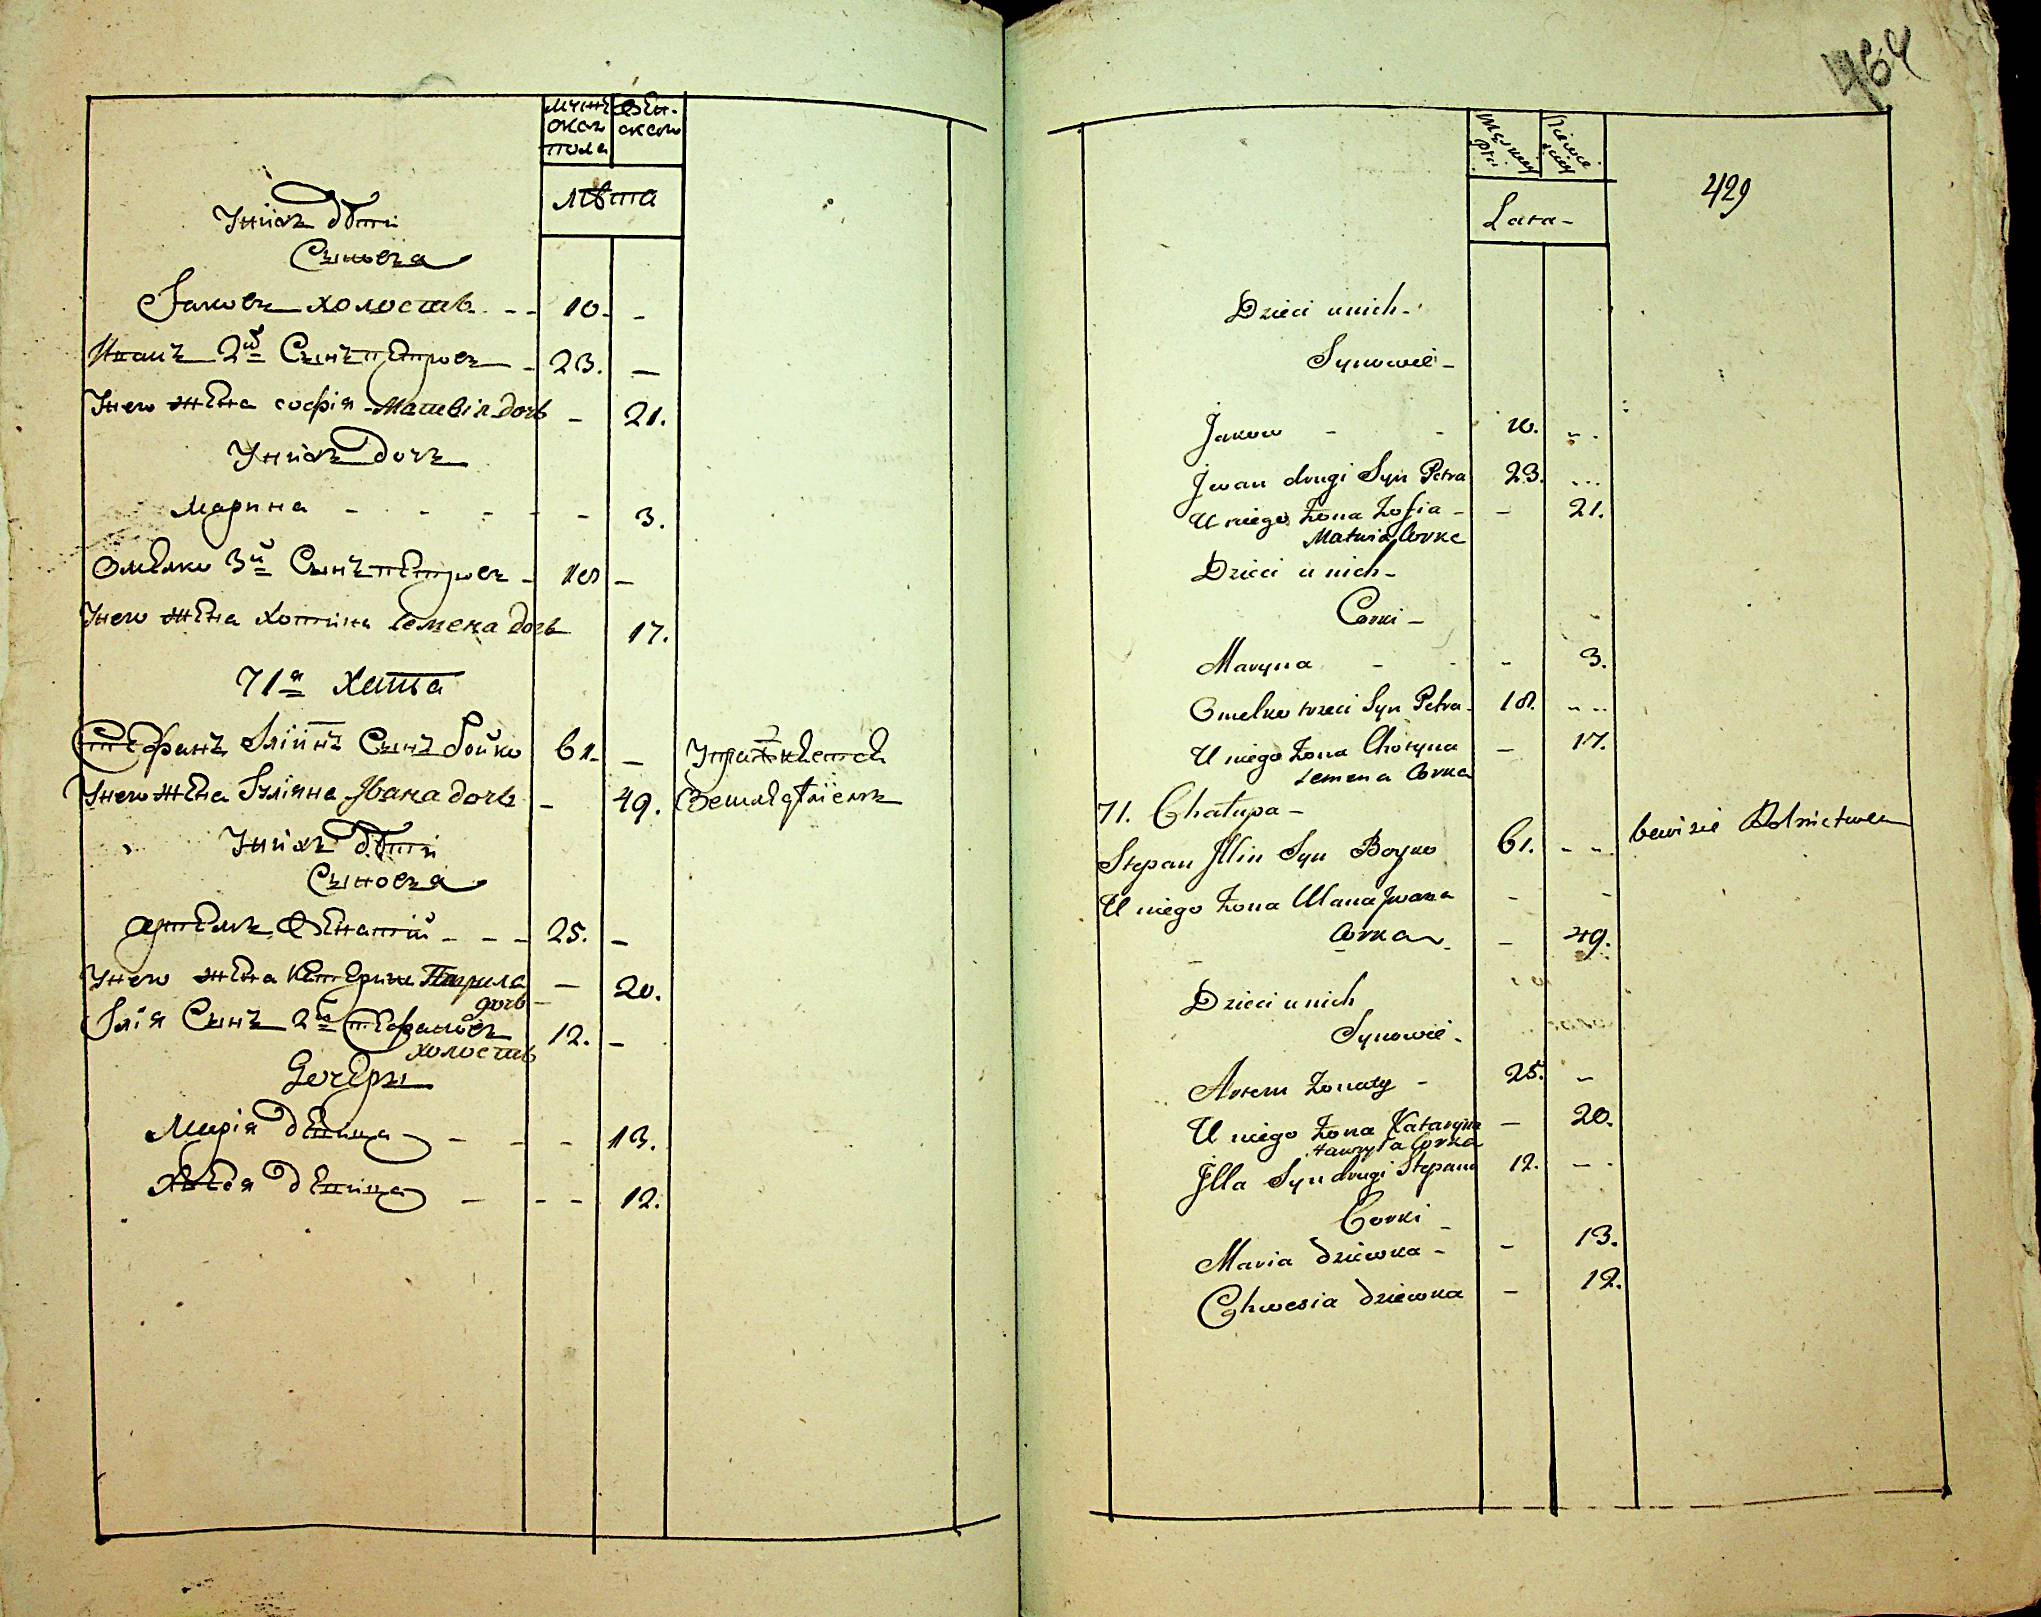 мужеска пола
женска
лѣта
Унихъ дѣти
Сыновья
Яковъ холостъ - - 10. -
Иванъ 2й Сынъ Петровъ - 23. -
Унего жена софія Матвія дочь - 21.
Унихъ дочь
Марина - - - - - 3.
Омелко 3й Сынъ Петровъ - 18 -
Унего жена Хотина Семена дочь 17.
71я хата
Стефанъ Іліинъ Сынъ Бойко 61. -
Унего жена Уліяна Ивана дочь - 49.
Унихъ дѣти
Сыновья
Артемъ - - - 25. -
Унего жена Катерина Гаврила - 20.
дочь -
Ілія Сынъ 2й Стефановъ 12. -
холостъ
Дочеры
Марія девица - - - 13.
Хвеся девица - - - 12.
464
429
Męskiey Płci
Lata -
Dzieci u nich -
Synowie -
Jakow - - 10. - -
Jwan drugi Syn Petra 23. ...
U niego Żona Zofia - - 21.
Matwia Corka
Dzieci u nich -
Corki -
Maryna - - - 3.
Omelko trzeci Syn Petra - 18. - -
U niego Żona Chotyna - 17.
Semena Corka
71. Chałupa -
Stepan Jllin Syn Boyko 61. - -
bawi sie Rolnictwem
U niego Żona Ulana Jwana - -
Corka - - 49.
Dzieci u nich
Synowie -
Artem Żonaty - 25. -
U niego Żona Kataryna - 20.
Hawryła Corka
Jlla Syn drugi Stepana 12. - -
Corki -
Maria dziewka - - 13.
Chwesia dziewka - 12.